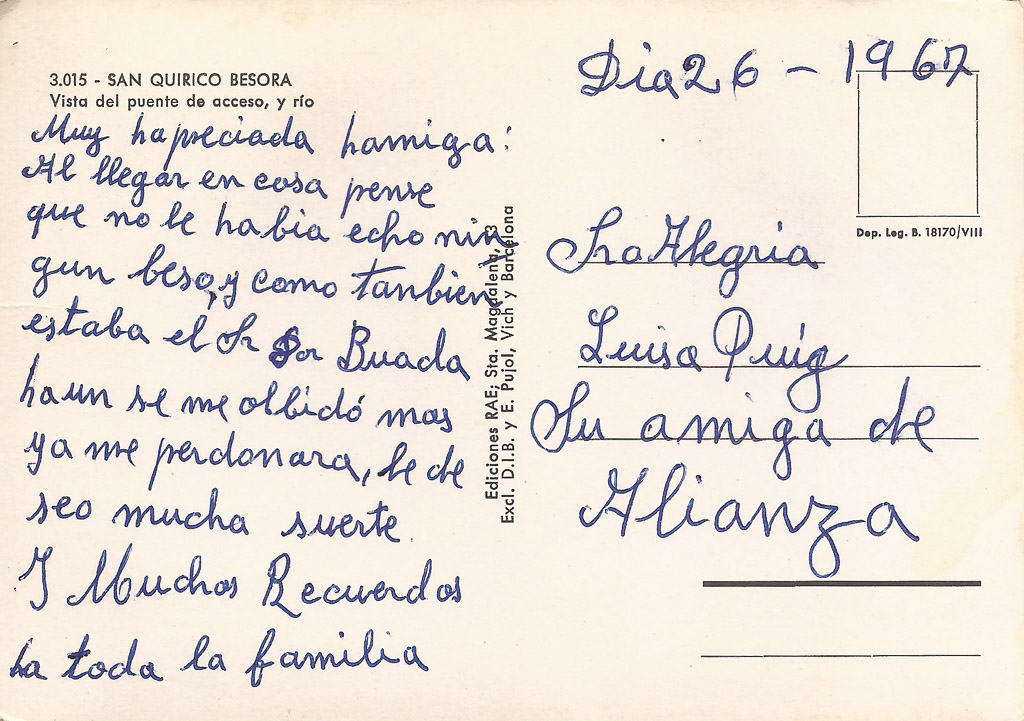 3.015 - SAN QUIRICO BESORA
Vista del puente de acceso, y río
Muy hapreciada hamiga:
Al llegar en cosa pense
que no le habia echo nin
gun beso, y como tanbien
estaba el Sr Dor Buada
haun se me olbidó mas
ya me perdonara, le de
seo mucha suerte
I Muchos Recuerdos
ha toda la familia
Ediciones RAE; Sta. Magdalena, 53
Excl. D.I.B. y E. Pujol, Vich y Barcelona
Dia 26 - 1967
Dep. Leg. B. 18170/VIII
Sra Alegria
Luisa Puig
Su amiga de
Alianza